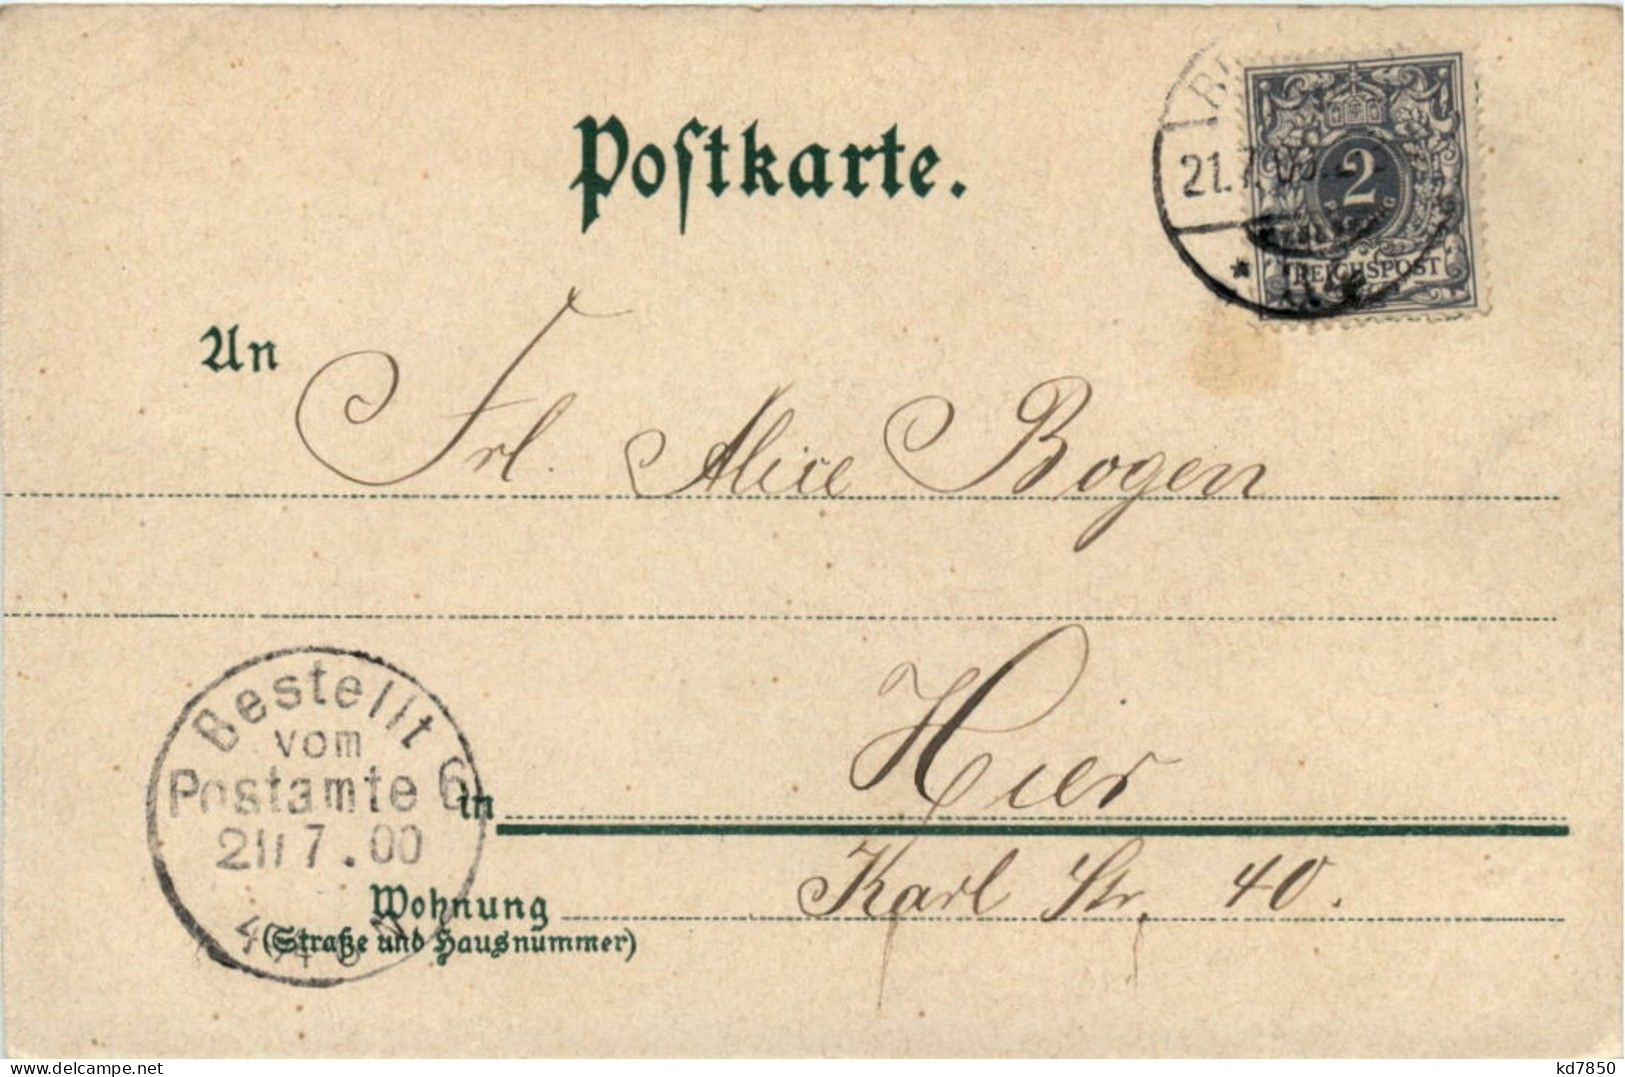 Postkarte.
21.7.00.2
2
PFENNIG
REICHSPOST
An Frl. Alice Bogen
Bestellt
vom
Postamte 6
21/7.00
in Hier
Wohnung Karl Str. 40.
(Straße und Hausnummer)
www.delcampe.net
kd7850